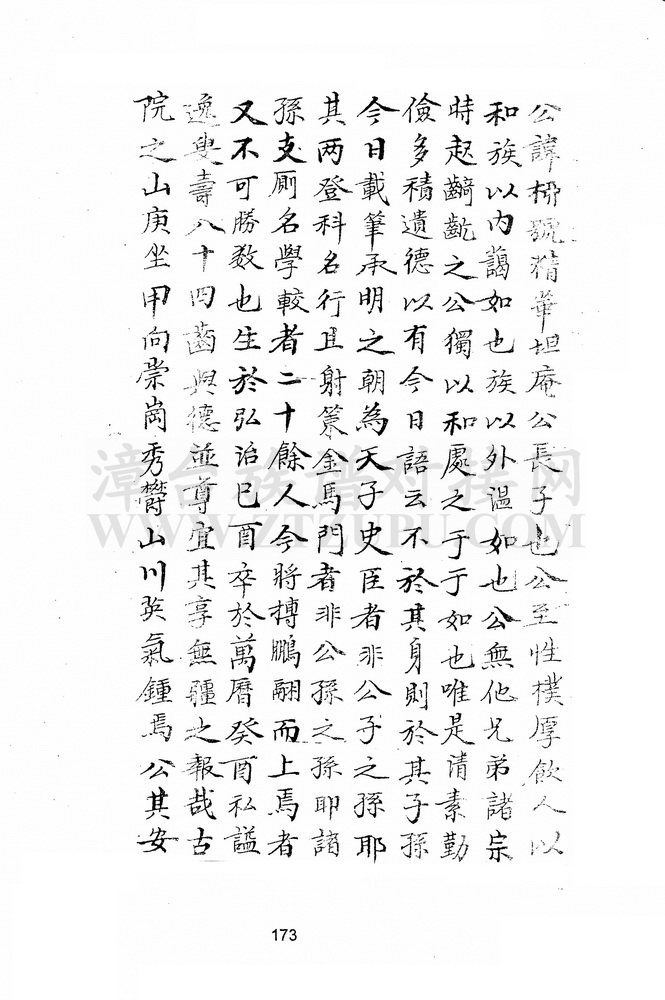 公諱栁號精華坦庵公長子也公至性樸厚飲人以
和族以内藹如也族以外温如也公無他兄弟諸宗
時起齮齕之公獨以和處之于于如也唯是清素勤
儉多積遺德以有今日語云不於其身則於其子孫
今日載筆承明之朝為天子史臣者非公子之孫耶
其两登科名行且射策金馬門者非公孫之孫耶諸
孫支厠名學較者二十餘人今將搏鵬翮而上焉者
又不可勝数也生於弘治巳酉卒於萬曆癸酉私謚
逸叟壽八十四齒與德並尊宜其享無疆之報哉古
院之山庚坐甲向崇崗秀欝山川英氣鍾焉公其安
漳台族谱对接网
WWW.ZTZUPU.COM
173